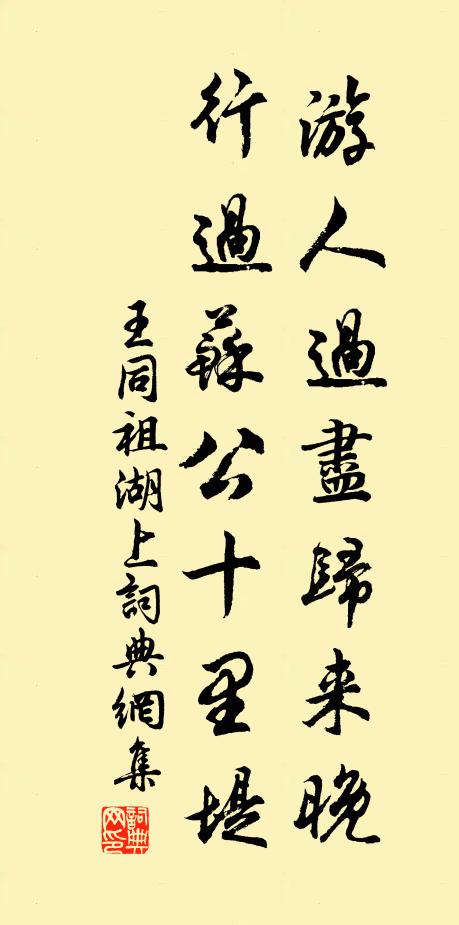 游人過盡歸来晚
行過蘇公十里堤
王同祖湖上詞典網集
詞典網印